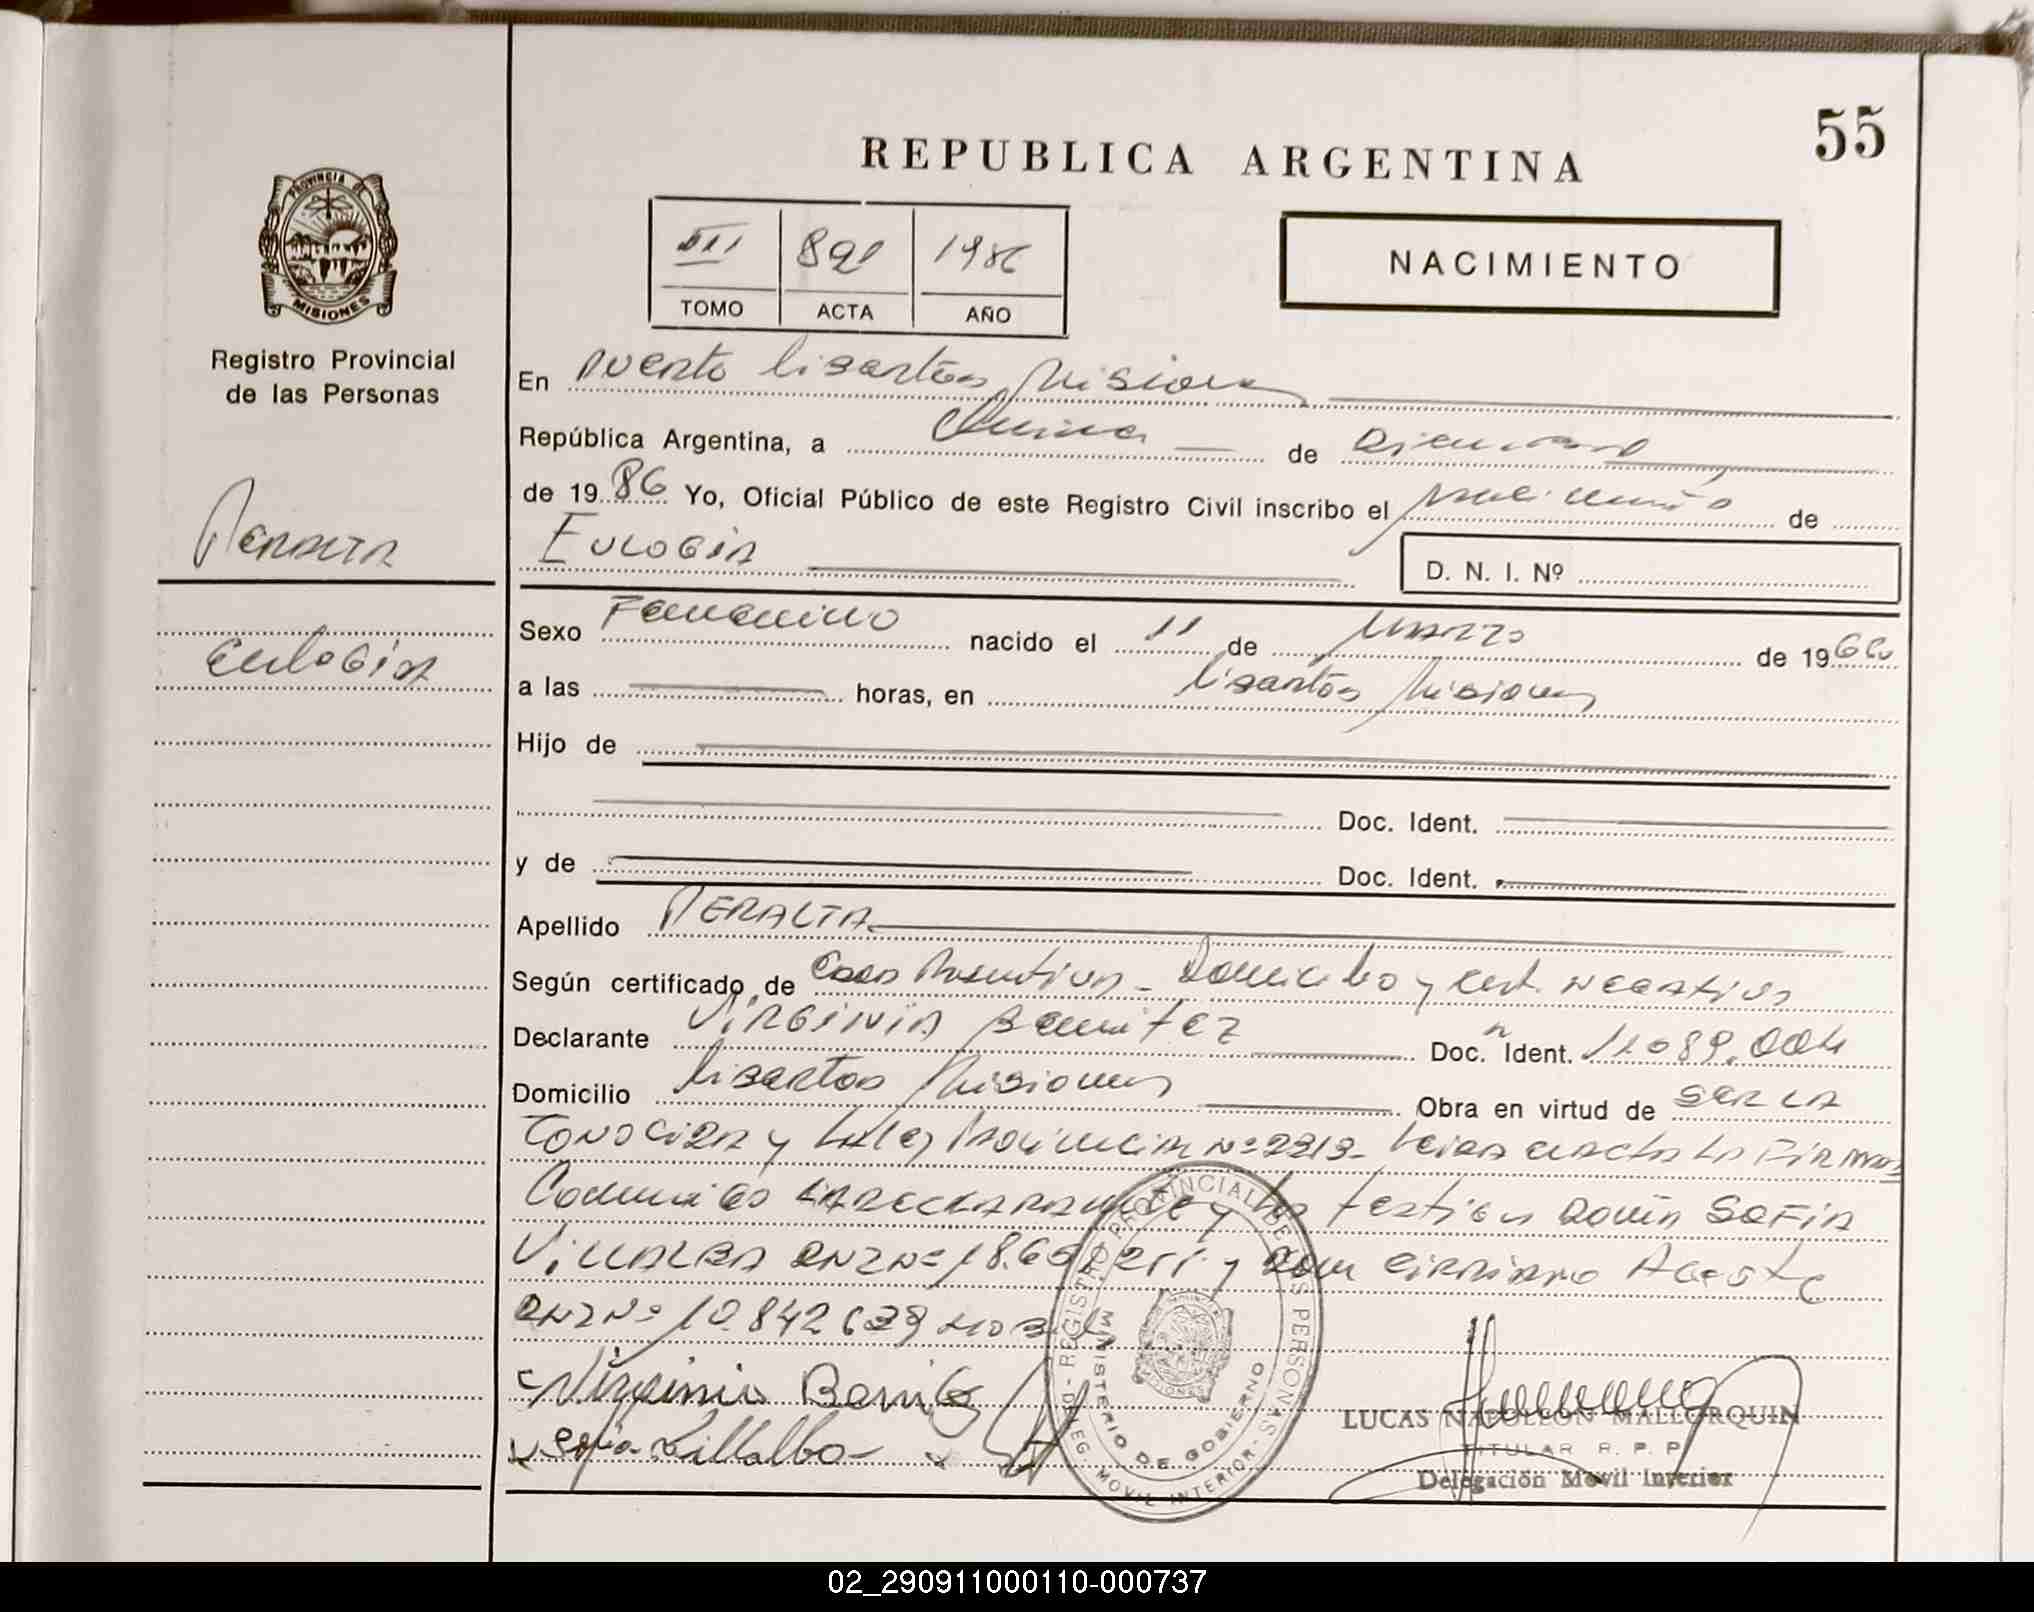 55
REPUBLICA ARGENTINA
III 1986
TOMO ACTA AÑO
NACIMIENTO
PROVINCIA DE MISIONES
Registro Provincial
de las Personas
PERALTA
Eulogia
En Puerto Libertad, Misiones
República Argentina, a Quince de Diciembre
de 1986 Yo, Oficial Público de este Registro Civil inscribo el nacimiento de
EULOGIA
D. N. I. Nº
Sexo Femenino nacido el 11 de Marzo de 19
a las horas, en Libertad Misiones
Hijo de
Doc. Ident.
y de Doc. Ident.
Apellido PERALTA
Según certificado de Domicilio y cert. negativo
Declarante VIRGINIA Benitez Doc. Ident. 11089.004
Domicilio Libertad Misiones Obra en virtud de SER LA
CONOCIDA y Ley Provincial Nº 2213- Leida el acta la FIRMAN
Conmigo LA DECLARANTE y los testigos Doña SOFIA
VILLALBA DNI Nº 18.65 211 y Don Cipriano Acosta
DNI Nº 10.842 639
Virginia Benitez
Sofia Villalba
REGISTRO PROVINCIAL DE LAS PERSONAS - DELEG. MOVIL INTERIOR -
MINISTERIO DE GOBIERNO
LUCAS NAPOLEON MALLORQUIN
TITULAR R. P. P.
Delegación Movil Interior
02_290911000110-000737